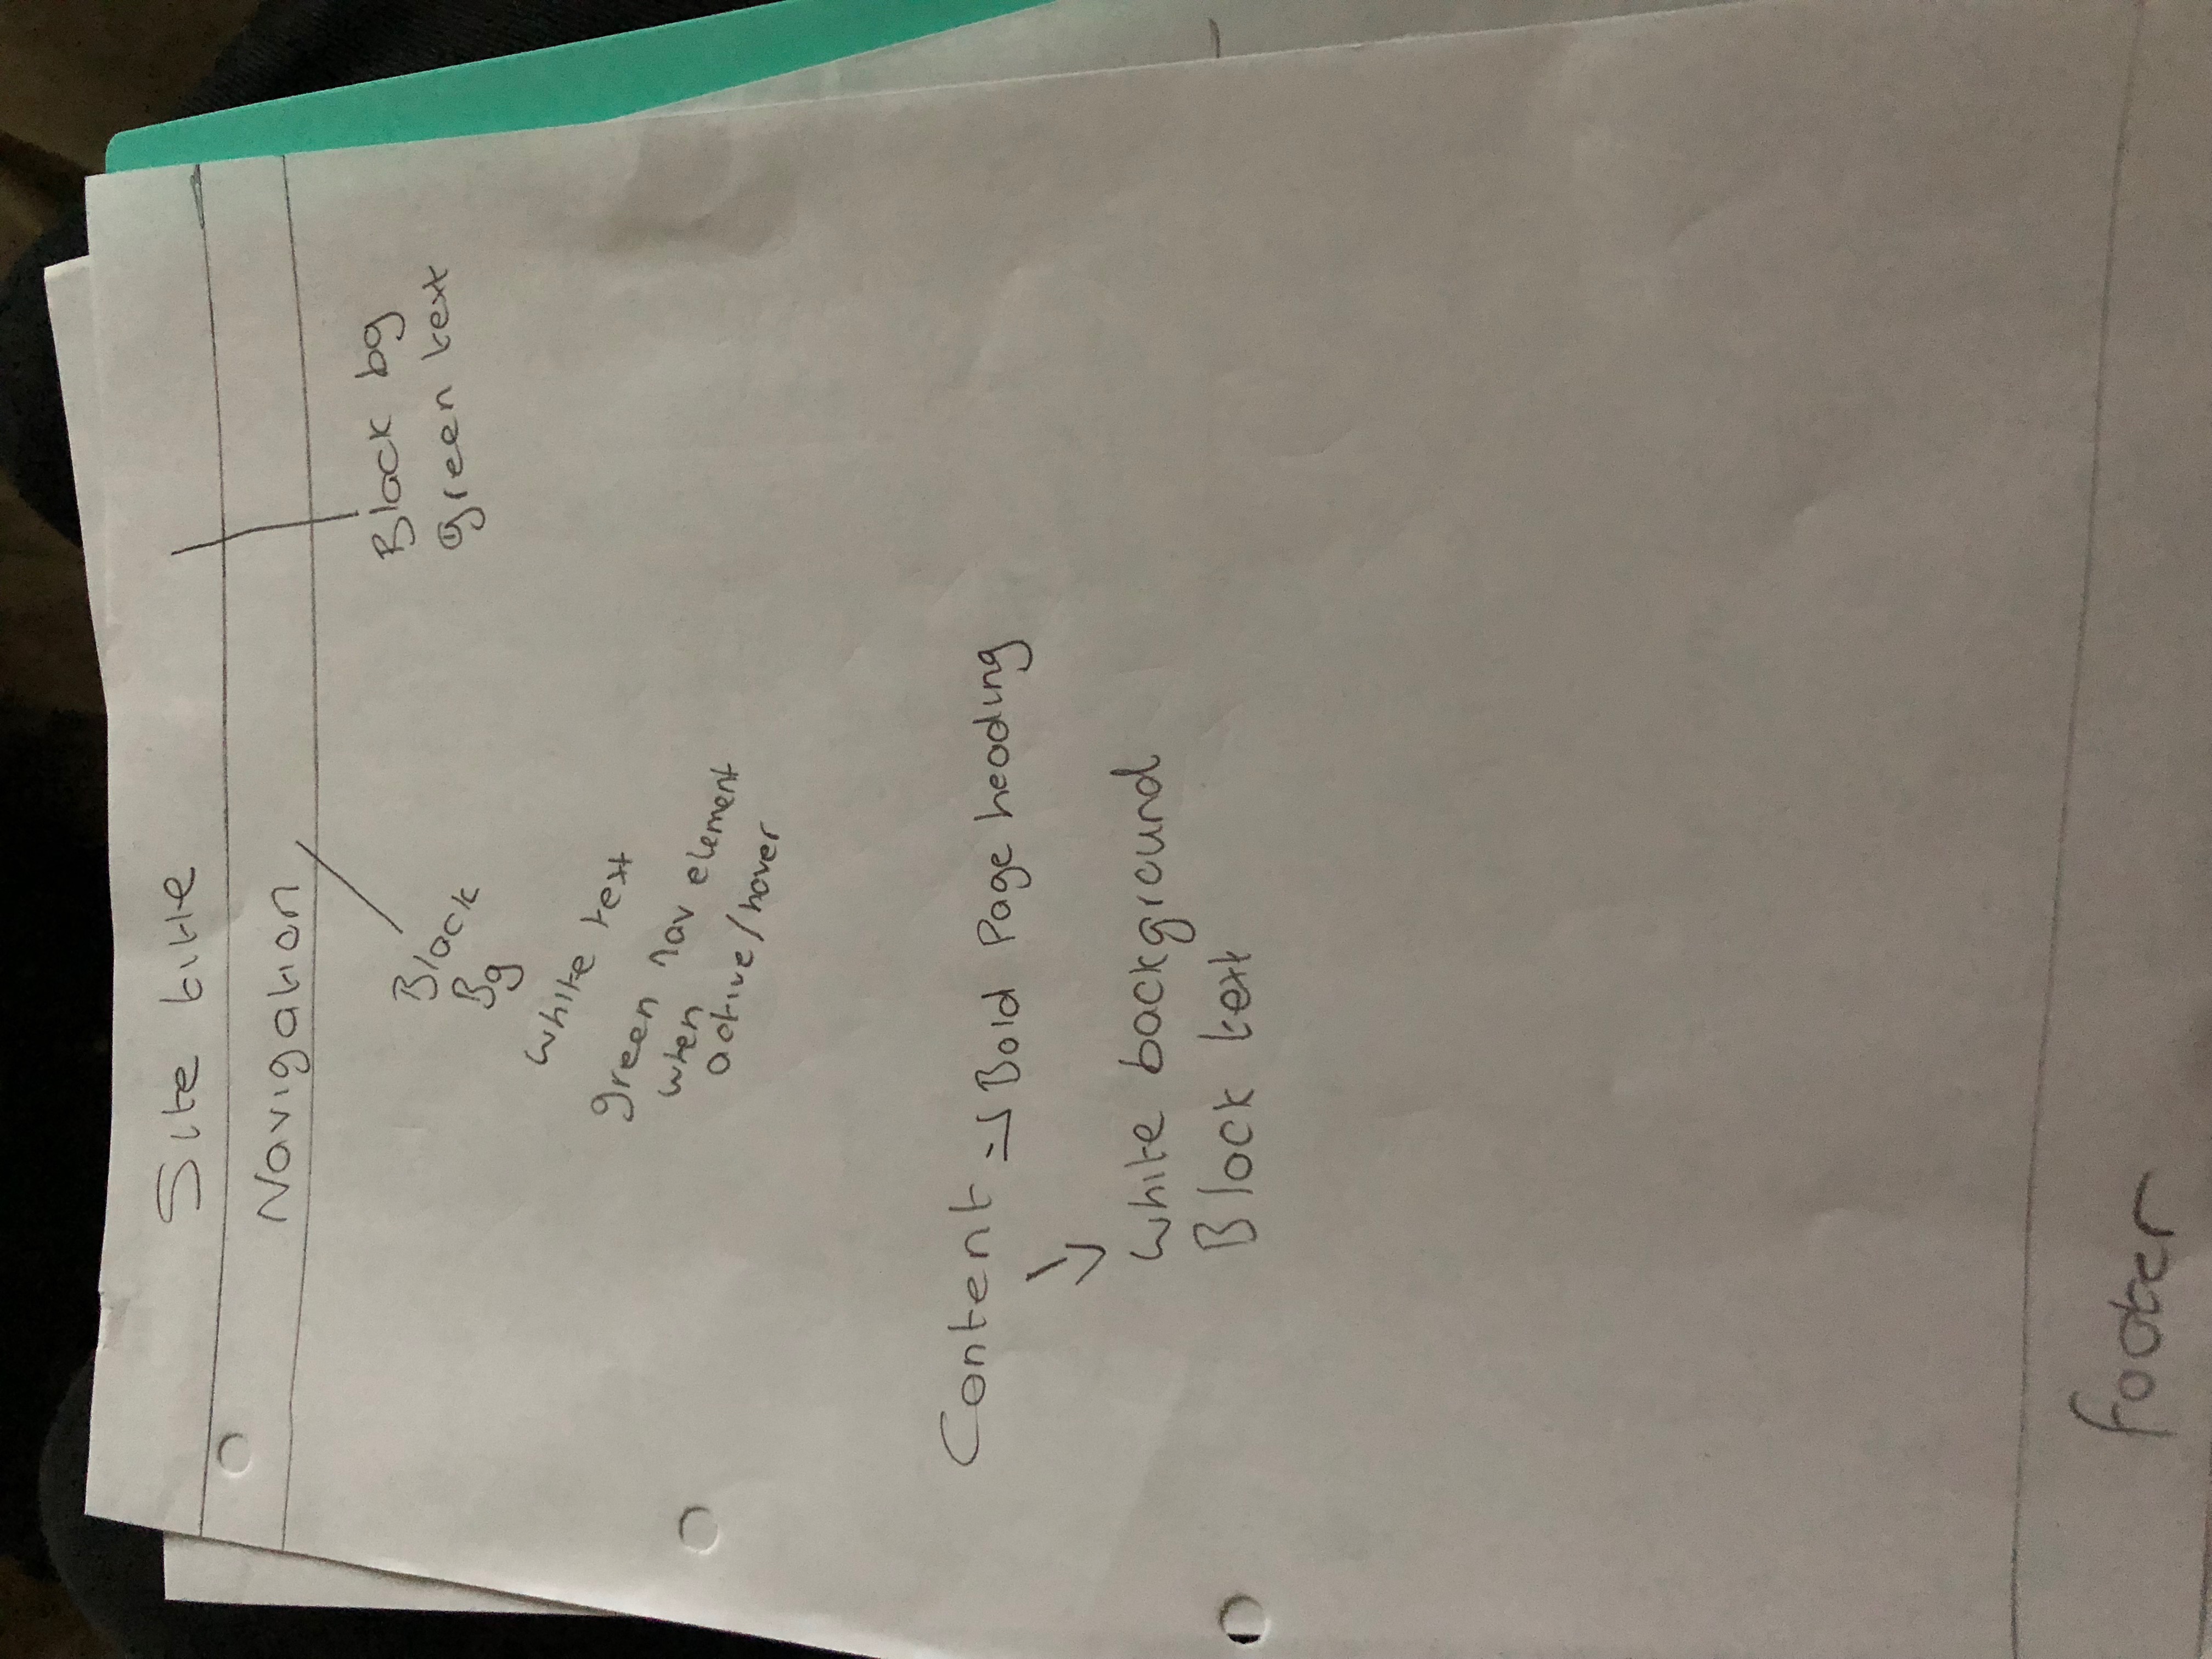 Site title
Navigation
Black bg
green text
Black
Bg
white text
green nav element
when
active/hover
Content → Bold Page heading
↓
white background
Black text
footer